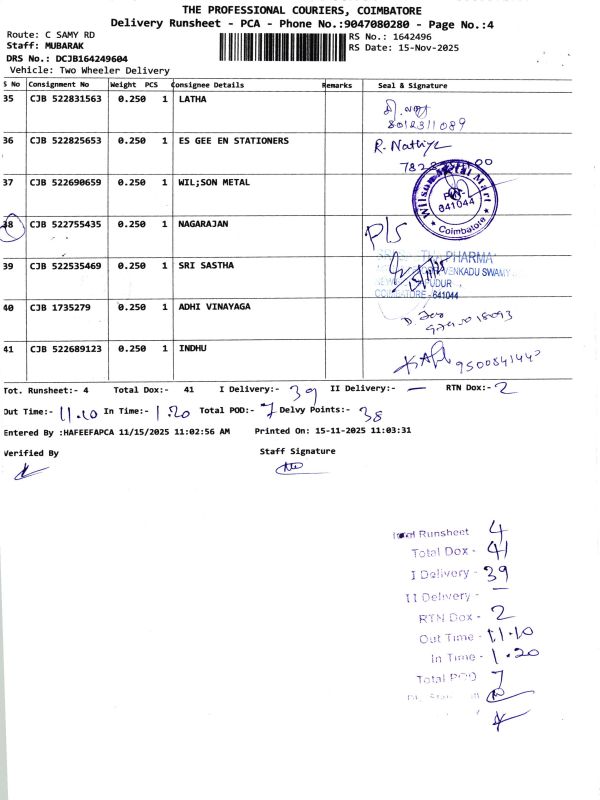 THE PROFESSIONAL COURIERS, COIMBATORE
Delivery Runsheet - PCA - Phone No.:9047080280 - Page No.:4
Route: C SAMY RD
RS No.: 1642496
Staff: MUBARAK
RS Date: 15-Nov-2025
DRS No.: DCJB164249604
Vehicle: Two Wheeler Delivery
S No Consignment No Weight PCS Consignee Details Remarks Seal & Signature
35 CJB 522831563 0.250 1 LATHA
8012311089
36 CJB 522825653 0.250 1 ES GEE EN STATIONERS R. Nathiya
37 CJB 522690659 0.250 1 WIL;SON METAL
Wilson Metal Mart
641044
Coimbatore
38 CJB 522755435 0.250 1 NAGARAJAN P/S
PHARMA
VENKADU SWAMY
39 CJB 522535469 0.250 1 SRI SASTHA 15/11/25
PUDUR
COIMBATORE - 641044
40 CJB 1735279 0.250 1 ADHI VINAYAGA
41 CJB 522689123 0.250 1 INDHU
Tot. Runsheet:- 4 Total Dox:- 41 I Delivery:- 39 II Delivery:- — RTN Dox:- 2
Out Time:- 11.10 In Time:- 1.20 Total POD:- 7 Delvy Points:- 38
Entered By :HAFEEFAPCA 11/15/2025 11:02:56 AM Printed On: 15-11-2025 11:03:31
Verified By Staff Signature
Runsheet 4
Total Dox - 41
I Delivery - 39
II Delivery - —
RTN Dox - 2
Out Time - 11.10
In Time - 1.20
Total POD 7